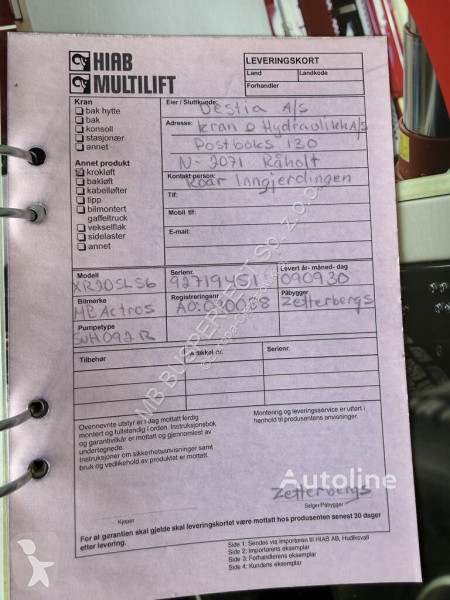 HIAB
MULTILIFT
LEVERINGSKORT
Land
Landkode
Forhandler
Kran
bak hytte
bak
konsoll
stasjonær
annet
Annet produkt
krokløft
bakløft
kabelløfter
tipp
bilmontert
gaffeltruck
vekselflak
sidelaster
annet
Eier / Sluttkunde:
Vestia A/S
Adresse:
Kran & Hydraulikk A/S
Postboks 130
N-2071 Råholt
Kontakt person:
Roar Inngjerdingen
Tlf:
Mobil tlf:
E-mail:
Modell
XR20SLS6
Serienr.
Levert år- måned- dag
090930
Bilmerke
MB Actros
Registreringsnr
Påbygger
Zetterbergs
Pumpetype
SUH092R
Tilbehør
Artikkel nr.
Serienr.
Ovennevnte utstyr er i dag mottatt ferdig
montert og fullstendig i orden. Instruksjonsbok
og garantivilkår er mottatt og gjennomlest av
undertegnede.
Instruksjoner om sikkerhetsanvisninger samt
bruk og vedlikehold av produktet er mottatt.
Montering og leveringsservice er utført i
henhold til produsentens anvisninger.
MB BUSPERFEKT Sp. z o.o.
Autoline
Zetterbergs
Kjøper
Selger/Påbygger
For at garantien skal gjelde skal leveringskortet være mottatt hos produsenten senest 30 dager
etter levering.
Side 1: Sendes via importøren til HIAB AB, Hudiksvall
Side 2: Importørens eksemplar
Side 3: Forhandlerens eksemplar
Side 4: Kundens eksemplar